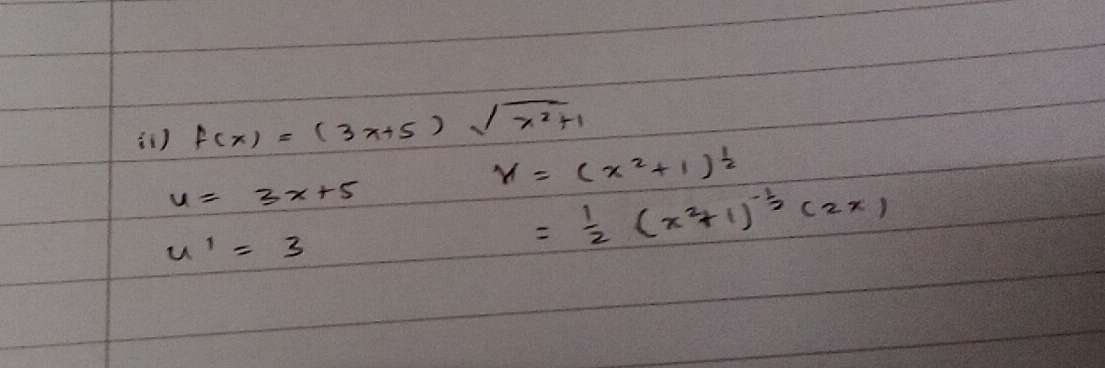 ii) f(x) = (3x+5) √x²+1
u = 3x+5 v = (x²+1)^½
u' = 3 = ½ (x²+1)^-½ (2x)